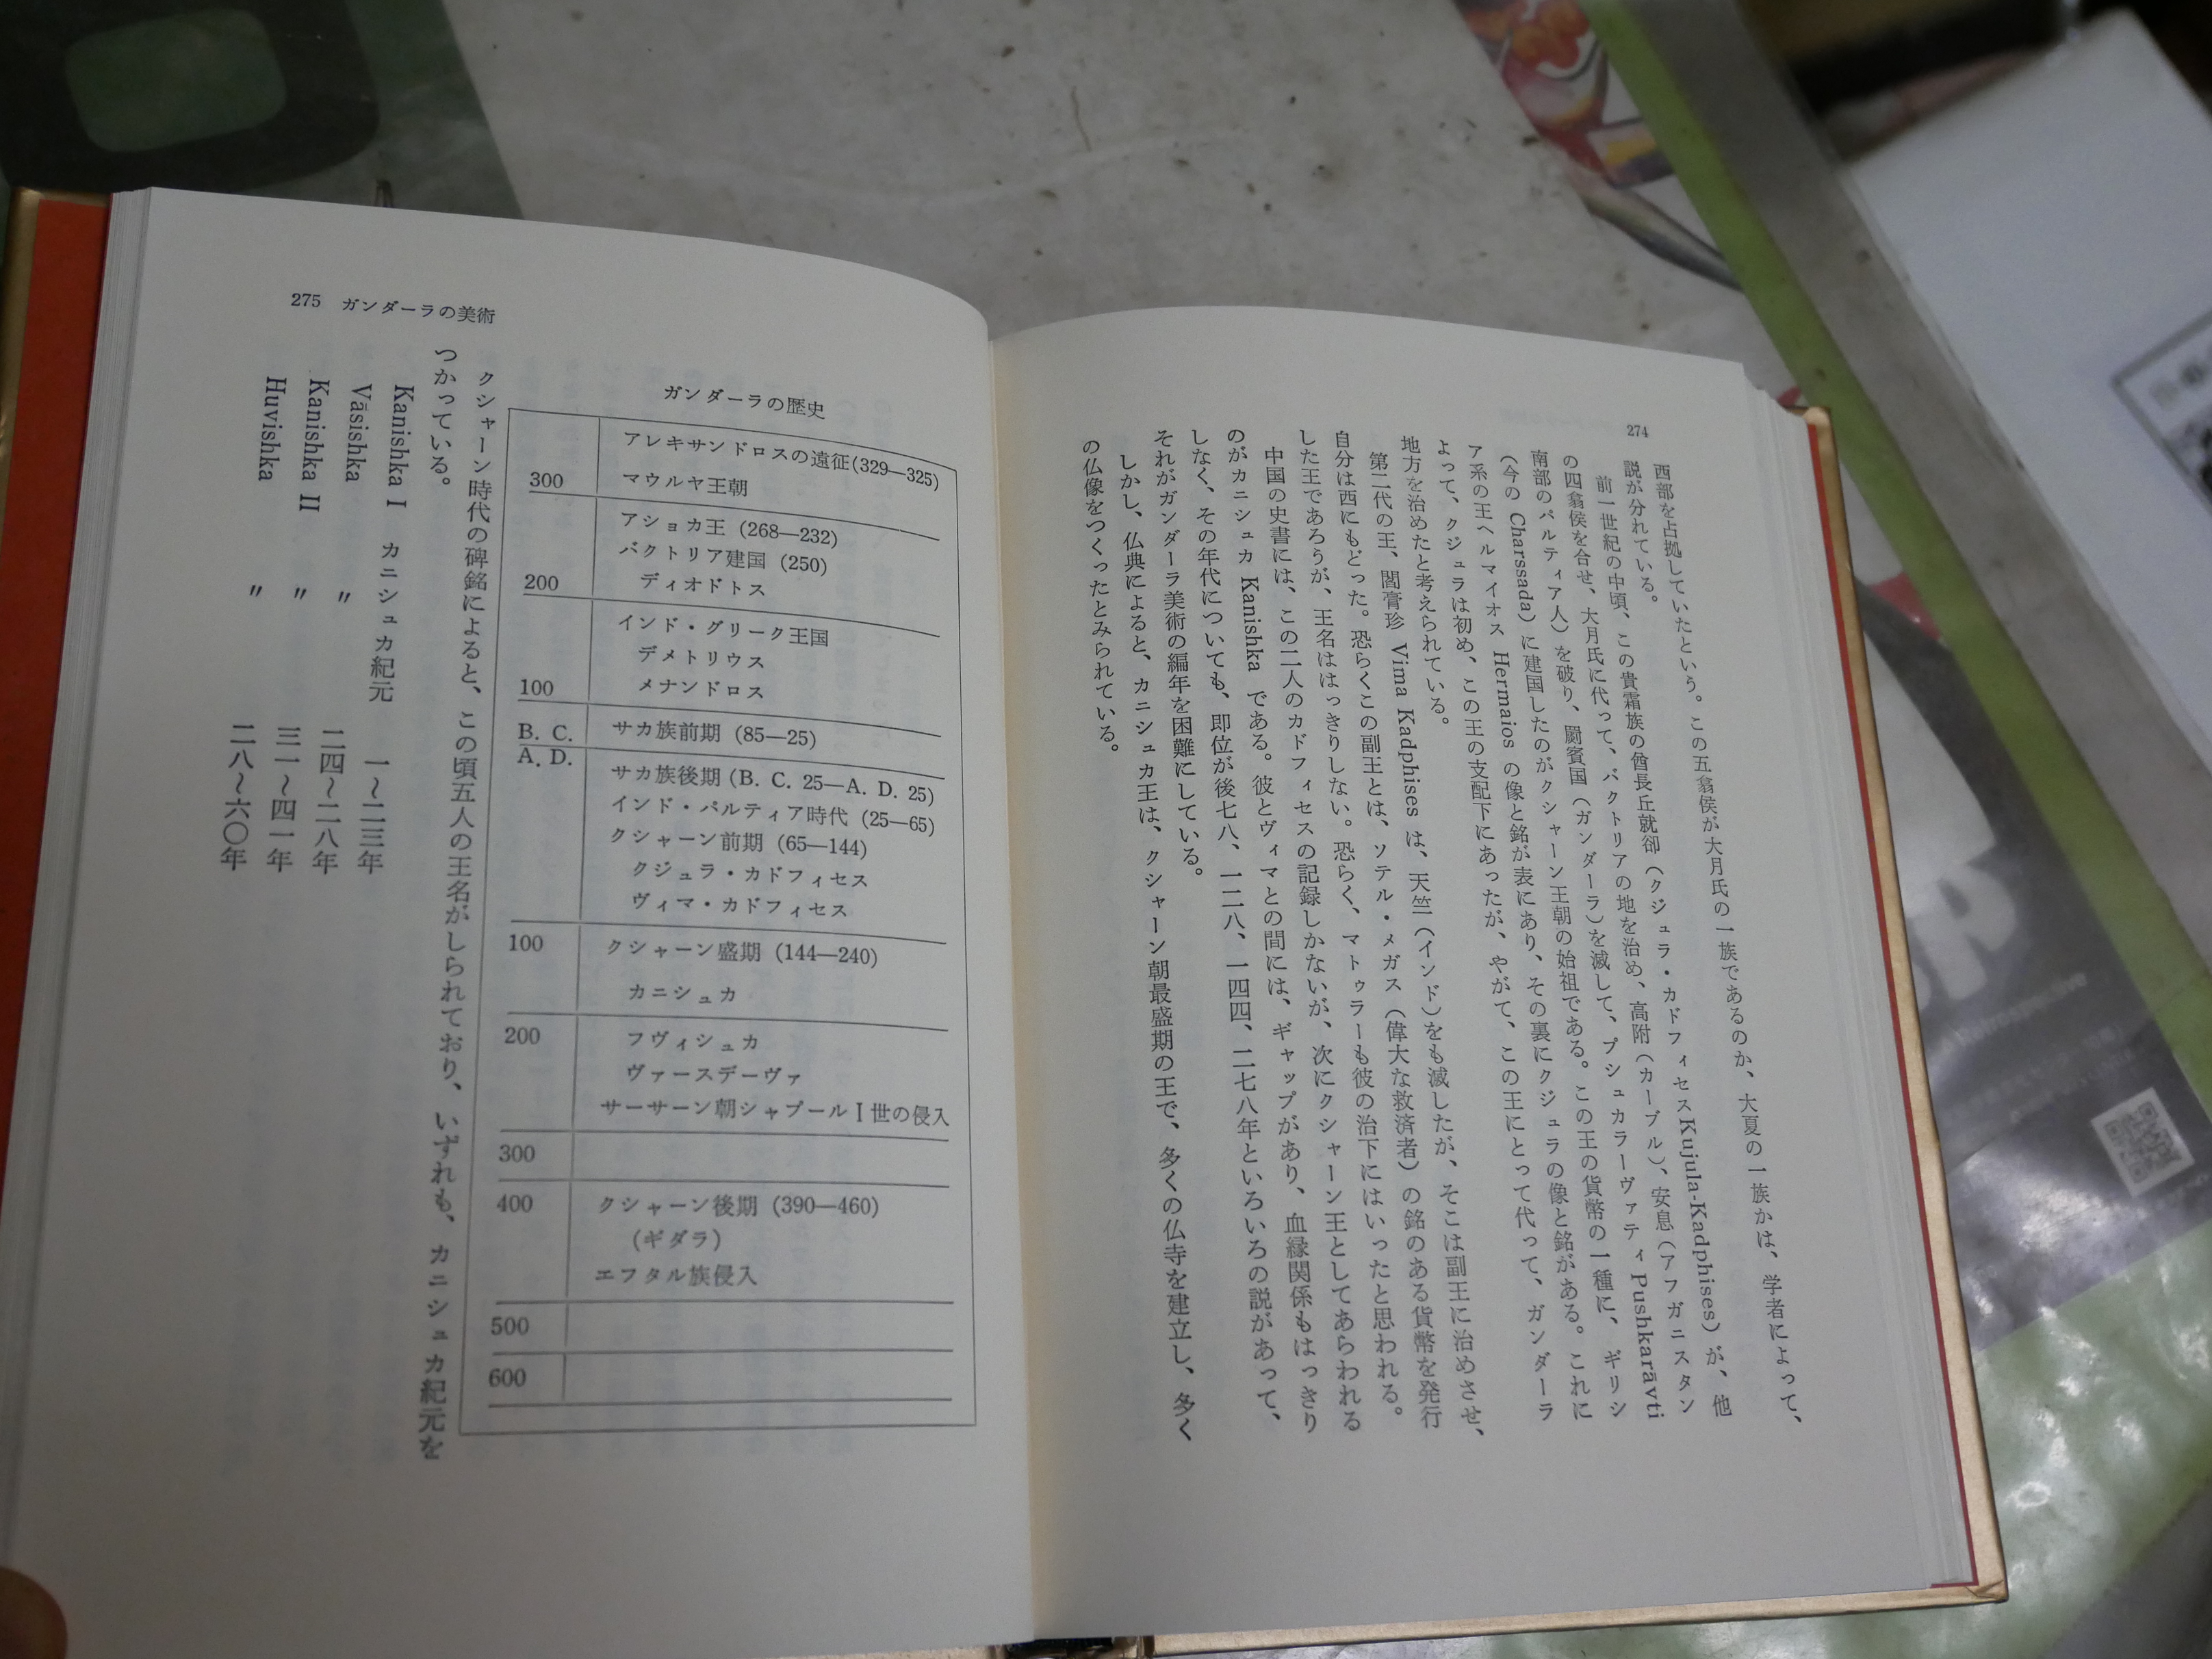 274
西部を占拠していたという。この五翕侯が大月氏の一族であるのか、大夏の一族かは、学者によって、
説が分れている。
前一世紀の中頃、この貴霜族の酋長丘就卻（クジュラ・カドフィセスKujula-Kadphises）が、他
の四翕侯を合せ、大月氏に代って、バクトリアの地を治め、高附（カーブル）、安息（アフガニスタン
南部のパルティア人）を破り、罽賓国（ガンダーラ）を滅して、プシュカラーヴァティ Pushkarāvti
（今の Charssada）に建国したのがクシャーン王朝の始祖である。この王の貨幣の一種に、ギリシ
ア系の王ヘルマイオス Hermaios の像と銘が表にあり、その裏にクジュラの像と銘がある。これに
よって、クジュラは初め、この王の支配下にあったが、やがて、この王にとって代って、ガンダーラ
地方を治めたと考えられている。
第二代の王、閻膏珍 Vima Kadphises は、天竺（インド）をも滅したが、そこは副王に治めさせ、
自分は西にもどった。恐らくこの副王とは、ソテル・メガス（偉大な救済者）の銘のある貨幣を発行
した王であろうが、王名ははっきりしない。恐らく、マトゥラーも彼の治下にはいったと思われる。
中国の史書には、この二人のカドフィセスの記録しかないが、次にクシャーン王としてあらわれる
のがカニシュカ Kanishka である。彼とヴィマとの間には、ギャップがあり、血縁関係もはっきり
しなく、その年代についても、即位が後七八、一二八、一四四、二七八年といろいろの説があって、
それがガンダーラ美術の編年を困難にしている。
しかし、仏典によると、カニシュカ王は、クシャーン朝最盛期の王で、多くの仏寺を建立し、多く
の仏像をつくったとみられている。
275 ガンダーラの美術
ガンダーラの歴史
アレキサンドロスの遠征(329—325)
300 マウルヤ王朝
アショカ王 (268—232)
バクトリア建国 (250)
200 ディオドトス
インド・グリーク王国
デメトリウス
100 メナンドロス
B. C. サカ族前期 (85—25)
A. D.
サカ族後期 (B. C. 25—A. D. 25)
インド・パルティア時代 (25—65)
クシャーン前期 (65—144)
クジュラ・カドフィセス
ヴィマ・カドフィセス
100 クシャーン盛期 (144—240)
カニシュカ
200 フヴィシュカ
ヴァースデーヴァ
サーサーン朝シャプールⅠ世の侵入
300
400 クシャーン後期 (390—460)
(ギダラ)
エフタル族侵入
500
600
クシャーン時代の碑銘によると、この頃五人の王名がしられており、いずれも、カニシュカ紀元を
つかっている。
Kanishka I カニシュカ紀元 一〜二三年
Vāsishka 〃 二四〜二八年
Kanishka II 〃 三一〜四一年
Huvishka 〃 二八〜六〇年